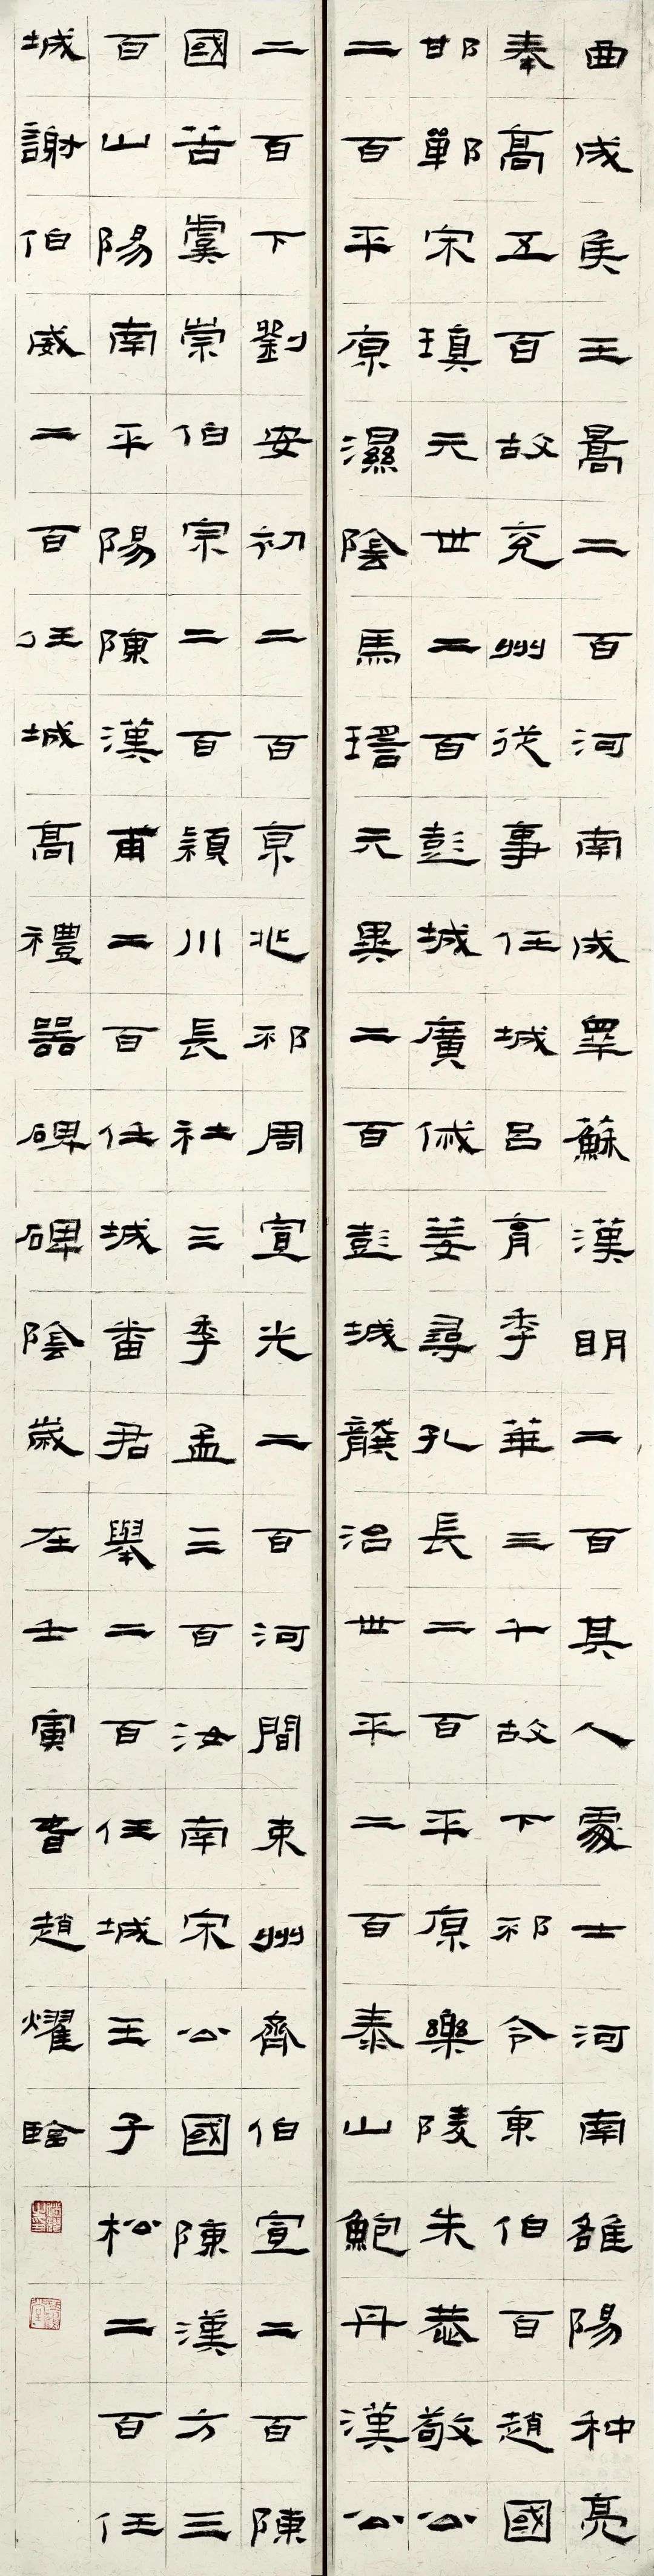 曲成侯王暠二百河南成睪蘇漢明二百其人處士河南雒陽种亮
奉高五百故兗州從事任城呂育季華三千故下邳令東伯百趙國
邯鄲宋瑱元世二百彭城廣戚姜尋孔長二百平原樂陵朱恭敬公
二百平原濕陰馬瑤元異二百彭城龔治世平二百泰山鮑丹漢公
二百下劉安初二百京兆邳周宣光二百河間東州齊伯宣二百陳
國苦虞崇伯宗二百潁川長社三季孟二百汝南宋公國陳漢方三
百山陽南平陽陳漢甫二百任城番君舉二百任城王子松二百任
城謝伯威二百任城高禮器碑碑陰歲在壬寅春趙燿臨